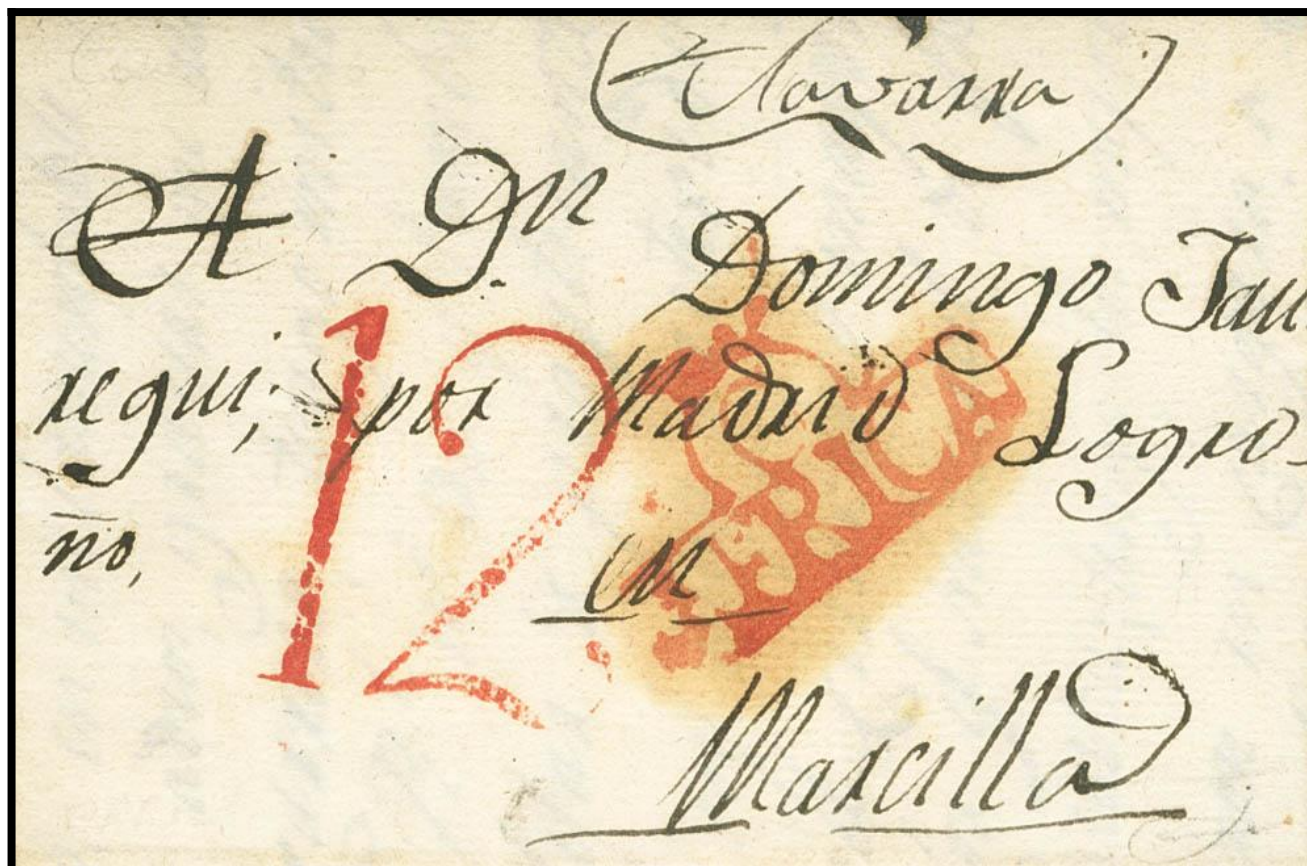 (Navarra)
A Dn. Domingo Jau
regui, por Madrid Logro-
ño,
en
Marcilla
12
YRICA